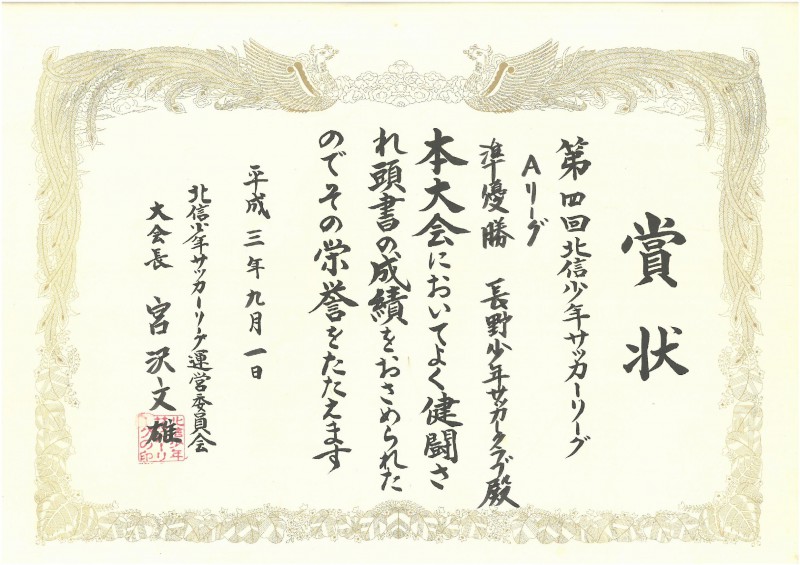 賞状
第四回北信少年サッカーリーグ
Aリーグ
準優勝 長野少年サッカークラブ殿
本大会においてよく健闘さ
れ頭書の成績をおさめられた
のでその栄誉をたたえます
平成三年九月一日
北信少年サッカーリーグ運営委員会
大会長 宮沢文雄
北信少年
サッカーリ
グの印